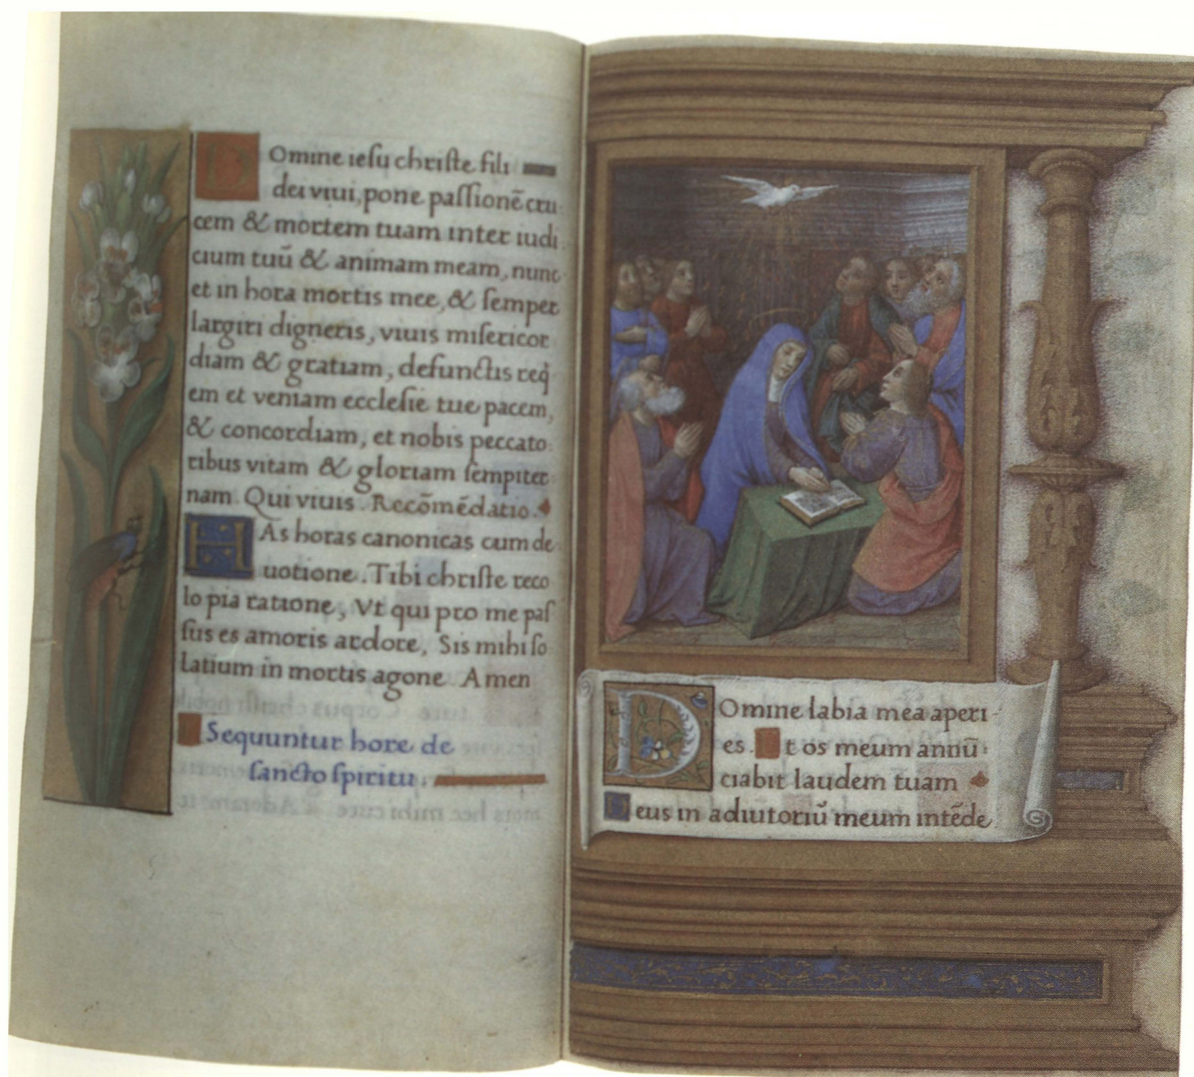 Domine iesu christe fili
dei viui, pone passionē cru
cem & mortem tuam inter iudi
cium tuū & animam meam, nunc
et in hora mortis mee, & semper
largiri digneris, viuis misericor
diam & gratiam, defunctis req̄
em et veniam ecclesie tue pacem,
& concordiam, et nobis peccato
ribus vitam & gloriam sempiter
nam. Qui viuis. Recōmēdatio.
HAs horas canonicas cum de
uotione. Tibi christe reco
lo pia ratione, Vt qui pro me pas
sus es amoris ardore, Sis mihi so
latium in mortis agone. Amen
Sequuntur hore de
sancto spiritu.
DOmine labia mea aperi
es. Et os meum annū
ciabit laudem tuam
Deus in adiutoriū meum intēde